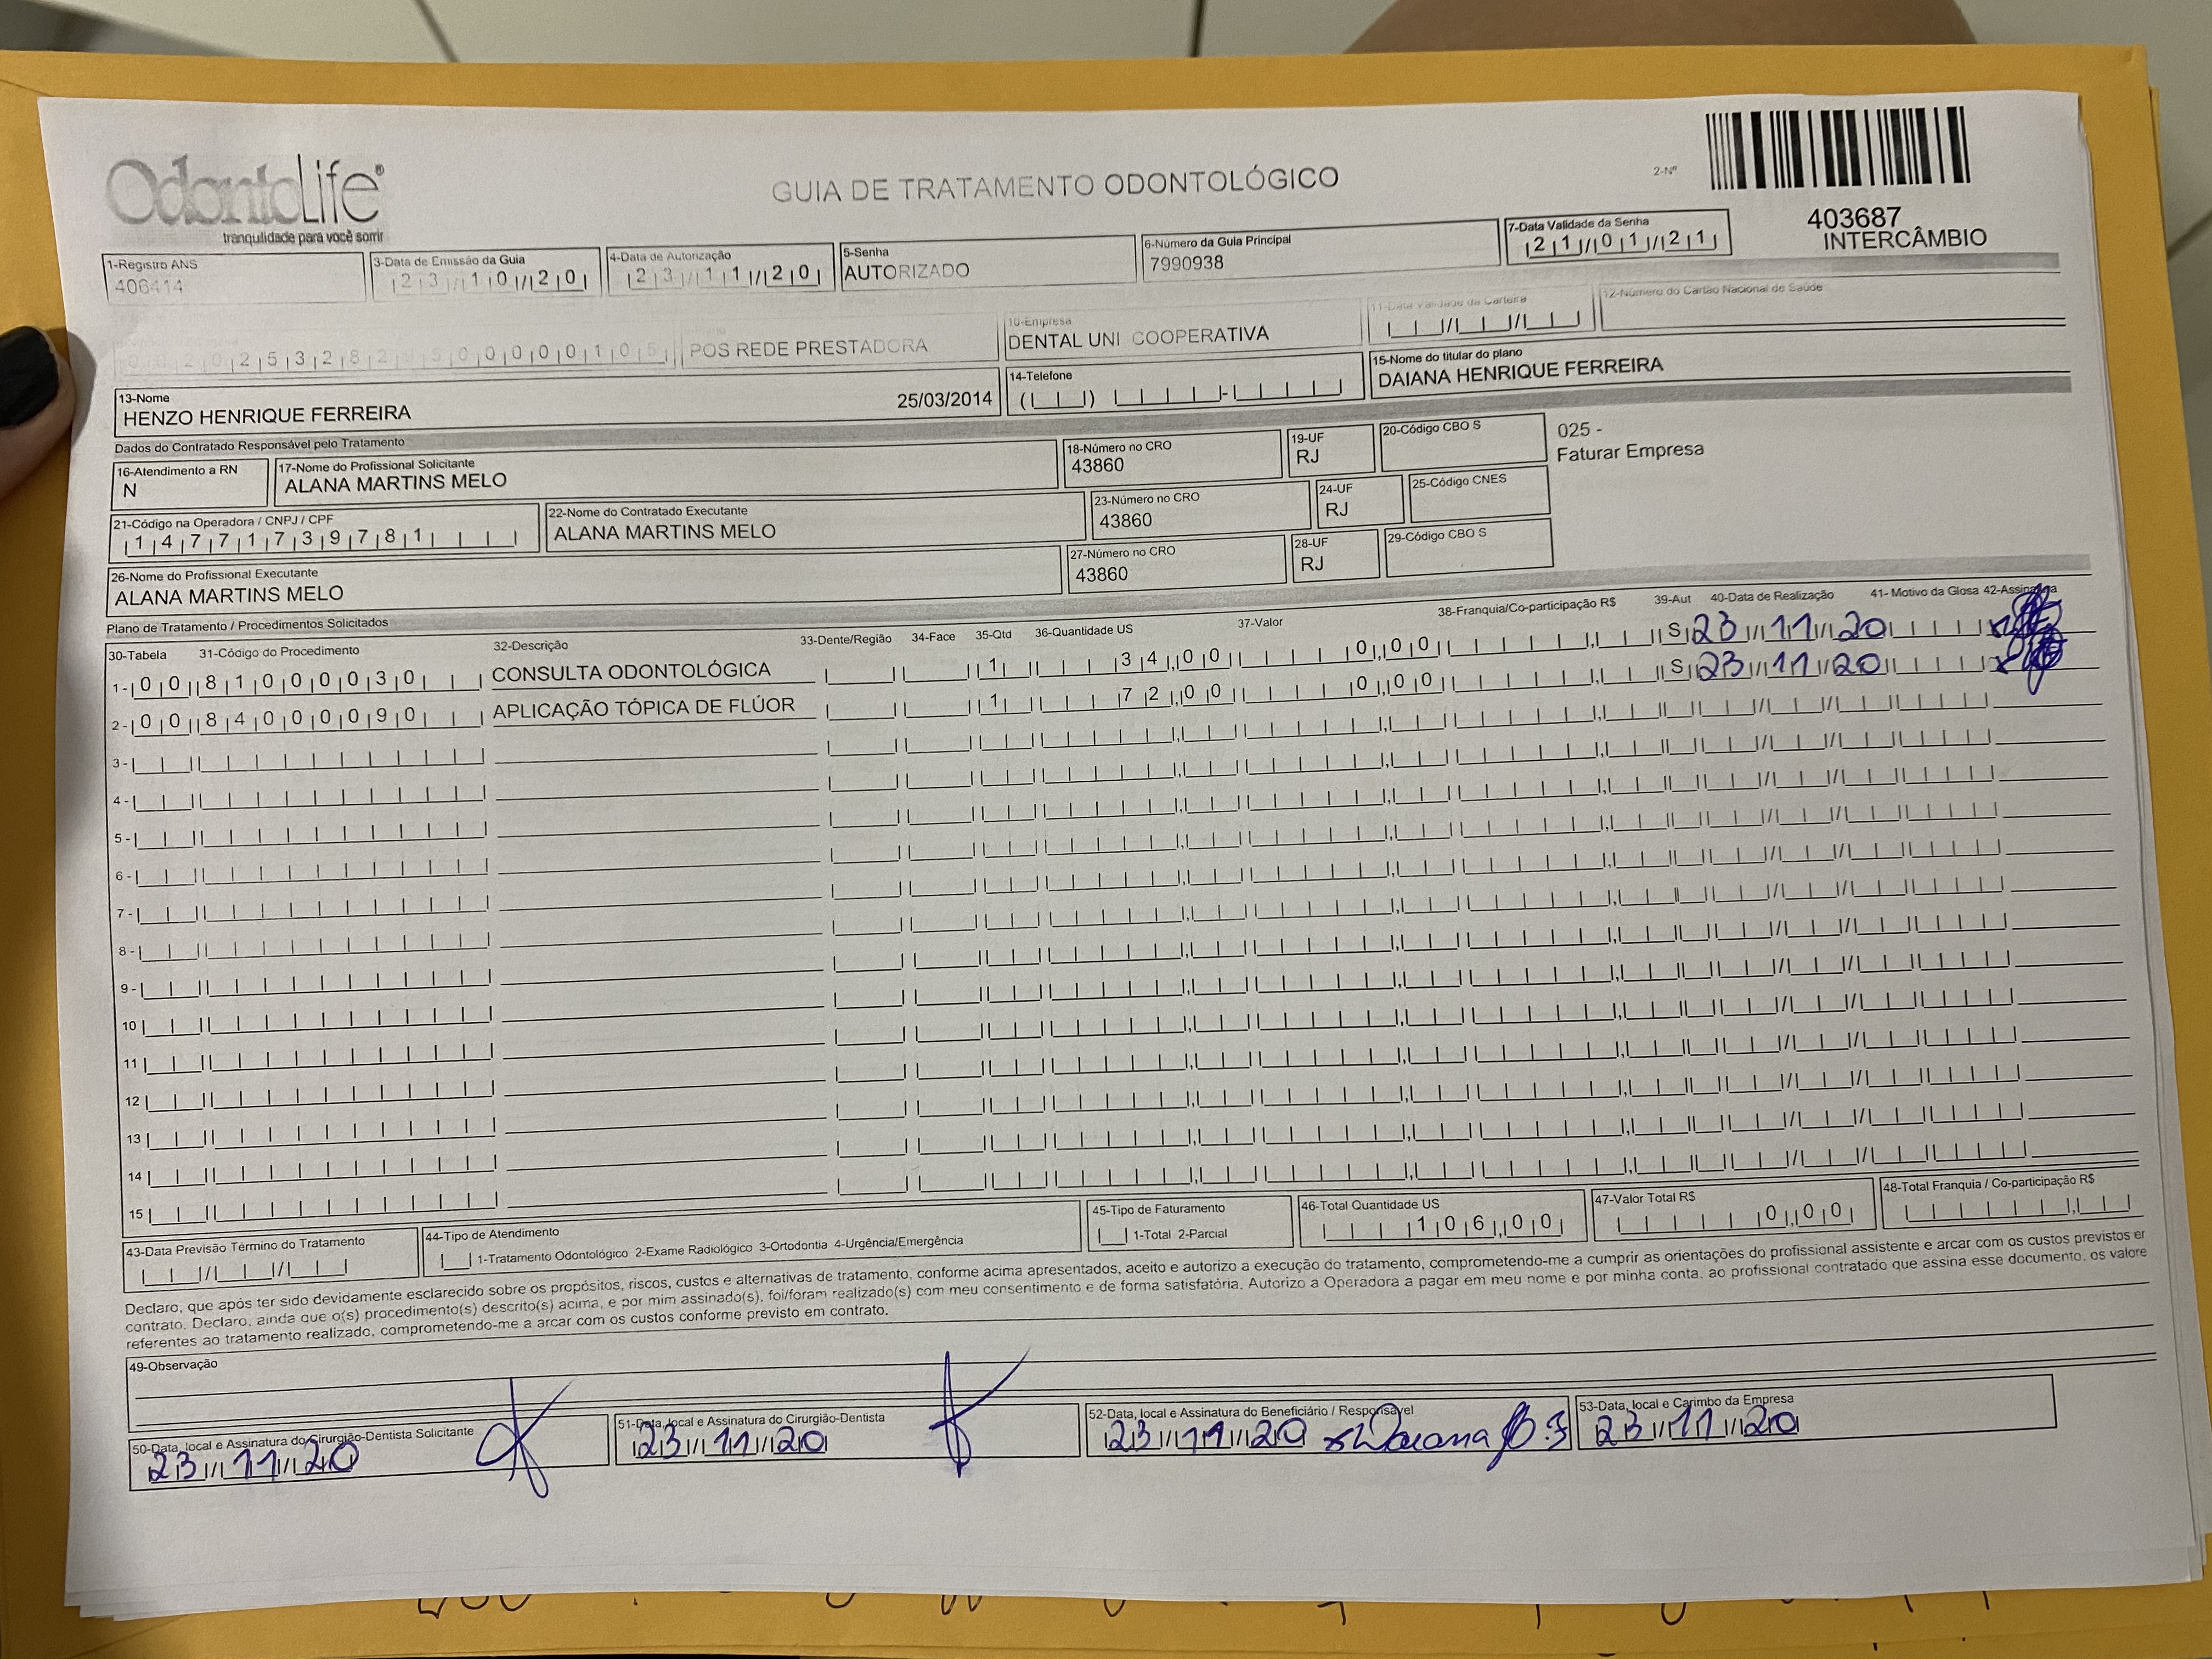 OdontoLife®
tranquilidade para você sorrir
GUIA DE TRATAMENTO ODONTOLÓGICO
2-Nº
403687
INTERCÂMBIO
1-Registro ANS
406414
3-Data de Emissão da Guia
23/10/20
4-Data de Autorização
23/11/20
5-Senha
AUTORIZADO
6-Número da Guia Principal
7990938
7-Data Validade da Senha
21/01/21
POS REDE PRESTADORA
10-Empresa
DENTAL UNI COOPERATIVA
11-Data Validade da Carteira
12-Número do Cartão Nacional de Saúde
13-Nome
HENZO HENRIQUE FERREIRA 25/03/2014
14-Telefone
15-Nome do titular do plano
DAIANA HENRIQUE FERREIRA
Dados do Contratado Responsável pelo Tratamento
16-Atendimento a RN
N
17-Nome do Profissional Solicitante
ALANA MARTINS MELO
18-Número no CRO
43860
19-UF
RJ
20-Código CBO S
025 -
Faturar Empresa
21-Código na Operadora / CNPJ / CPF
14771739781
22-Nome do Contratado Executante
ALANA MARTINS MELO
23-Número no CRO
43860
24-UF
RJ
25-Código CNES
26-Nome do Profissional Executante
ALANA MARTINS MELO
27-Número no CRO
43860
28-UF
RJ
29-Código CBO S
Plano de Tratamento / Procedimentos Solicitados
30-Tabela 31-Código do Procedimento 32-Descrição 33-Dente/Região 34-Face 35-Qtd 36-Quantidade US 37-Valor 38-Franquia/Co-participação R$ 39-Aut 40-Data de Realização 41- Motivo da Glosa 42-Assinatura
1- 00 81000030 CONSULTA ODONTOLÓGICA 1 34,00 0,00 S 23/11/20
2- 00 84000090 APLICAÇÃO TÓPICA DE FLÚOR 1 72,00 0,00 S 23/11/20
3-
4-
5-
6-
7-
8-
9-
10
11
12
13
14
15
43-Data Previsão Término do Tratamento
44-Tipo de Atendimento
1-Tratamento Odontológico 2-Exame Radiológico 3-Ortodontia 4-Urgência/Emergência
45-Tipo de Faturamento
1-Total 2-Parcial
46-Total Quantidade US
106,00
47-Valor Total R$
0,00
48-Total Franquia / Co-participação R$
Declaro, que após ter sido devidamente esclarecido sobre os propósitos, riscos, custos e alternativas de tratamento, conforme acima apresentados, aceito e autorizo a execução do tratamento, comprometendo-me a cumprir as orientações do profissional assistente e arcar com os custos previstos er
contrato. Declaro, ainda que o(s) procedimento(s) descrito(s) acima, e por mim assinado(s), foi/foram realizado(s) com meu consentimento e de forma satisfatória. Autorizo a Operadora a pagar em meu nome e por minha conta, ao profissional contratado que assina esse documento, os valore
referentes ao tratamento realizado, comprometendo-me a arcar com os custos conforme previsto em contrato.
49-Observação
50-Data, local e Assinatura do Cirurgião-Dentista Solicitante
23/11/20
51-Data, local e Assinatura do Cirurgião-Dentista
23/11/20
52-Data, local e Assinatura do Beneficiário / Responsável
23/11/20 Daiana
53-Data, local e Carimbo da Empresa
23/11/20